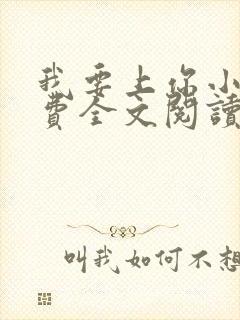 我要上你小
費全文閱讀
叫我如何不想